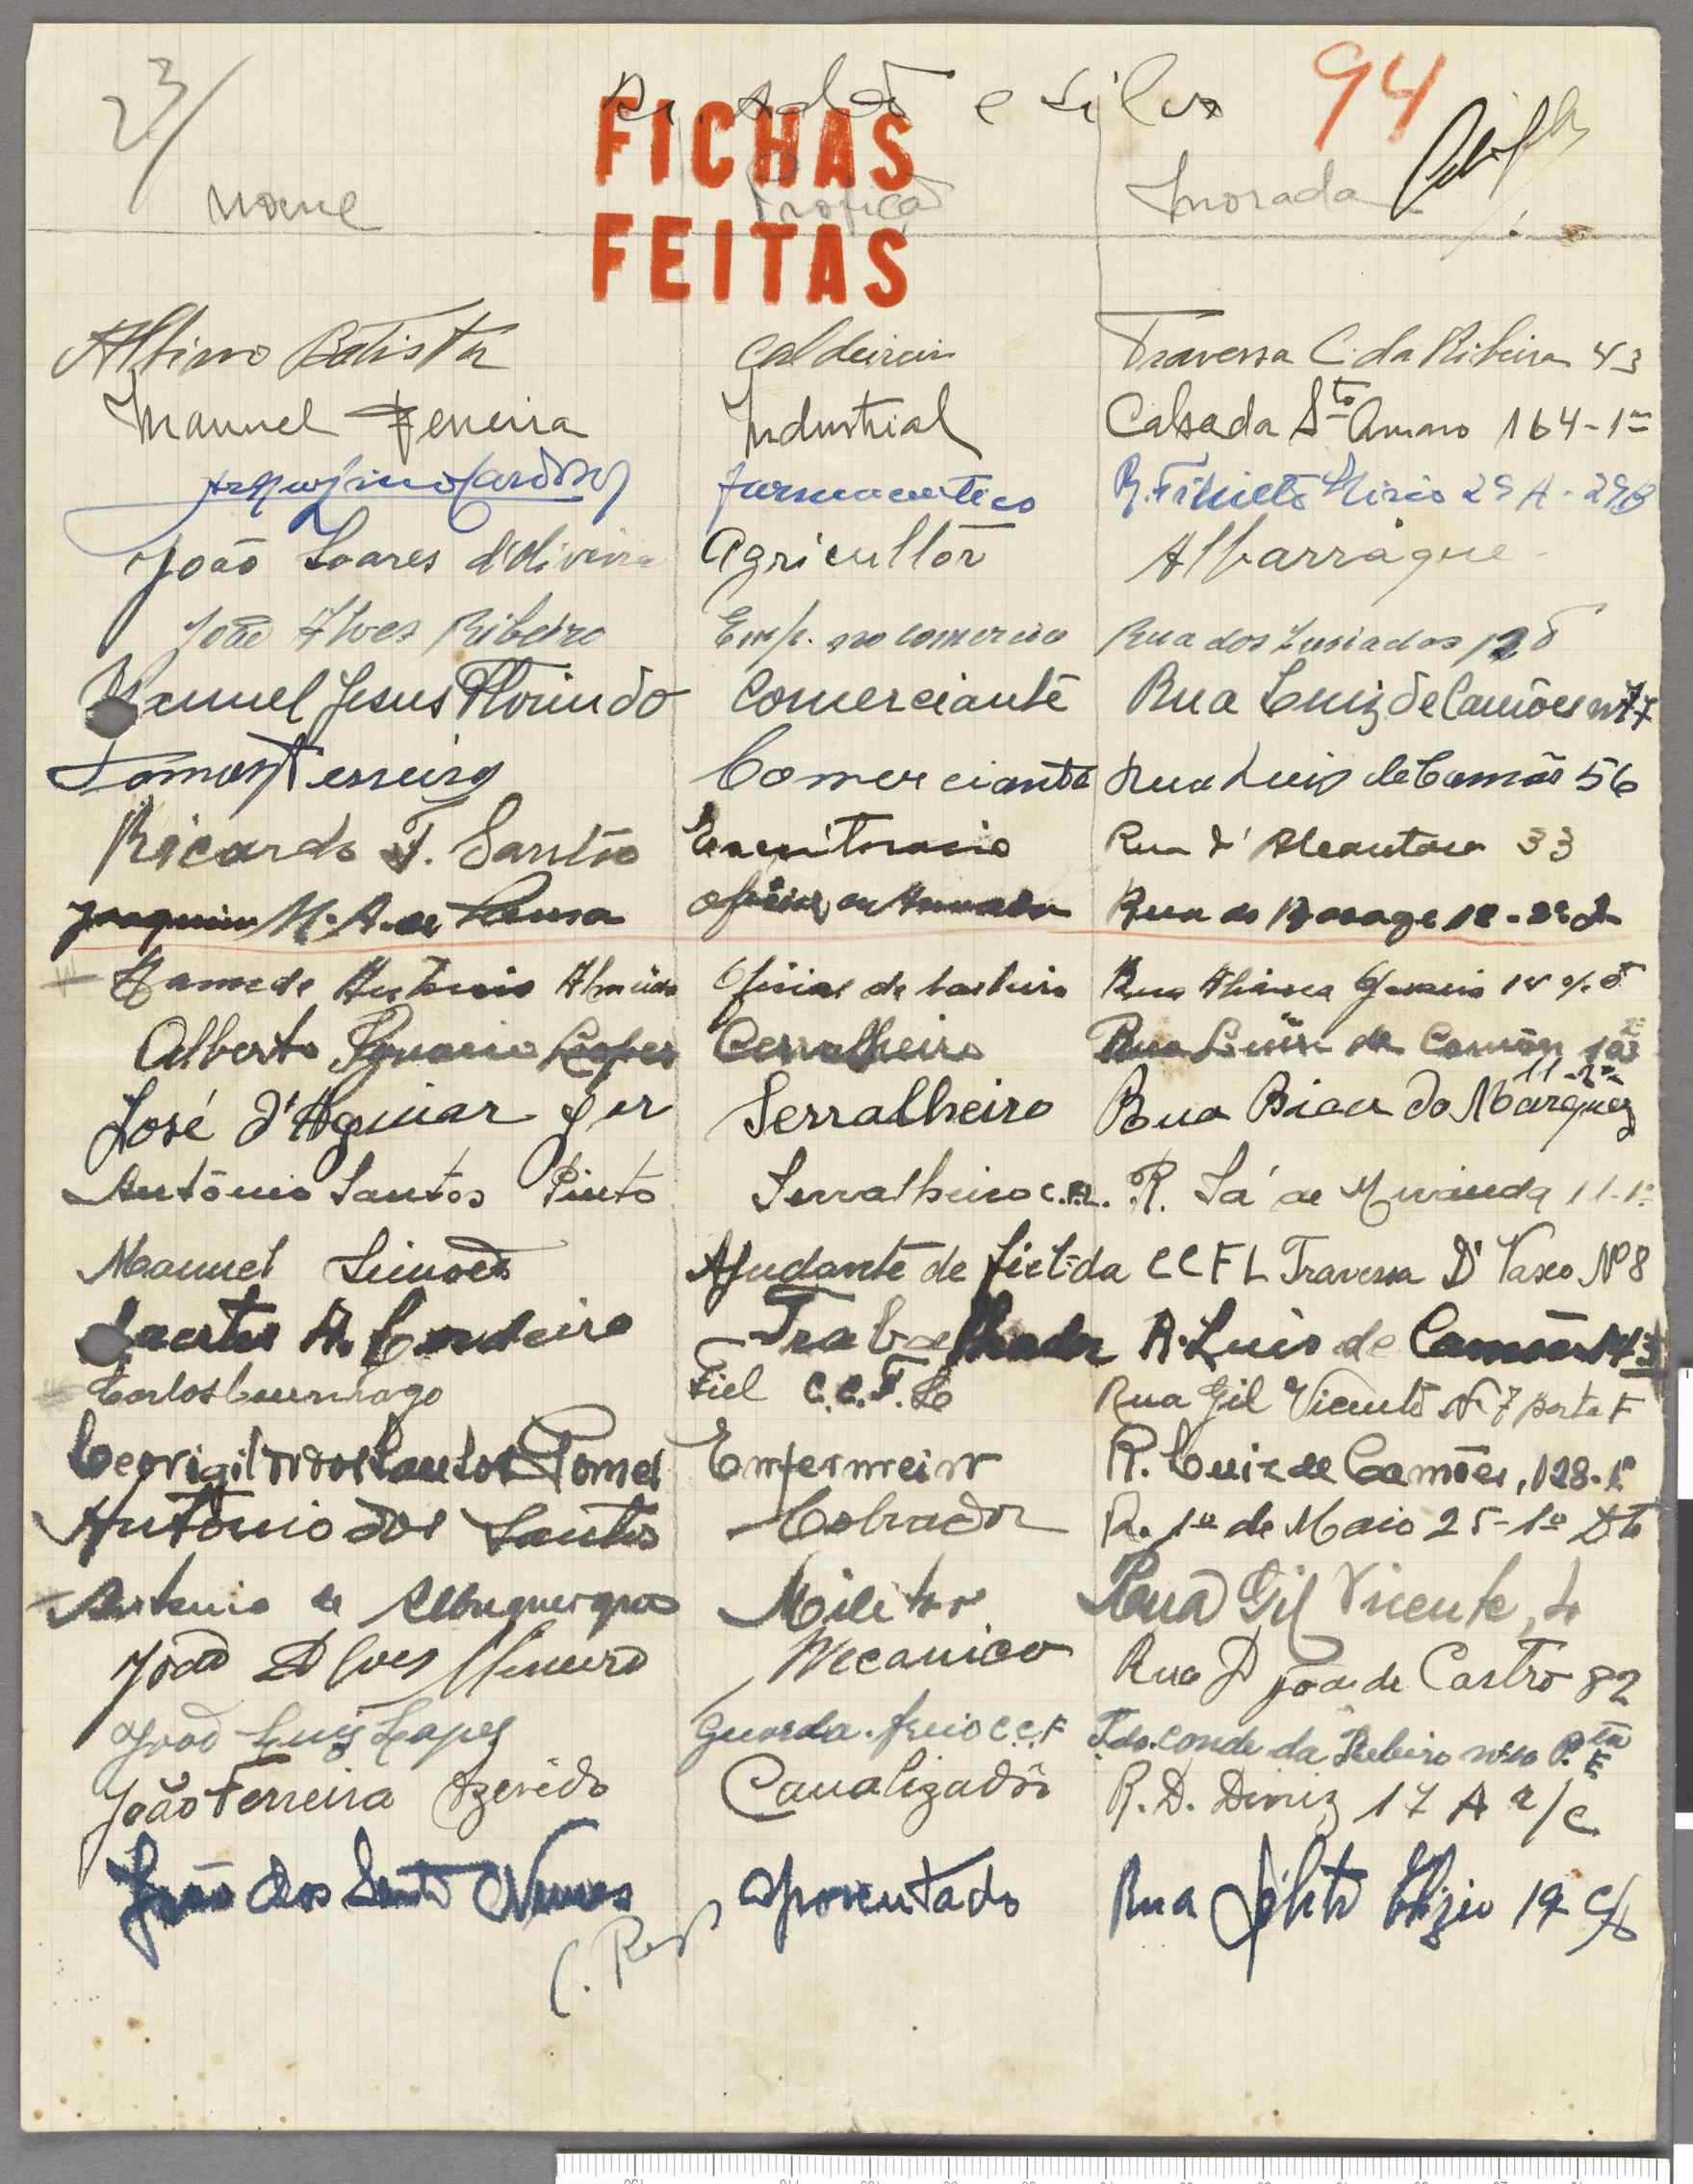 23/ e Silva 94
FICHAS
nome Profição morada
FEITAS
Albino Batista Caldeireiro Travessa C. da Ribeira 43
Manuel Ferreira Industrial Calsada Sto Amaro 164-1º
Cardoso farmaceutico R. Filinto Elisio 29 A - 29B
João Soares d'Oliveira Agricultor Albarraque
João Alves Ribeiro Emp. no comercio Rua dos Lusiadas
Manuel Jesus Florindo Comerciante Rua Luiz de Camões nº 77
Tomas Ferreira Comerciante Rua Luis de Camões 56
Ricardo F. Santos Escriturario Rua d'Alcantara 33
Joaquim M. A. de Sousa Oficial da Armada Rua do Bocage 12-2º D
Antonio Almeida Oficial de barbeiro Rua
Alberto Ignacio Lopes Cerralheiro Rua Luis de Camões
José d'Aguiar Jor Serralheiro Rua Bica do Marquez 11-2º
António Santos Pinto Serralheiro C.F.L. R. Sá de Miranda 11-1º
Manuel Simões Ajudante de fiel da CCFL Travessa D. Vasco Nº 8
Laertes A. Cordeiro Trabalhador R. Luis de Camões 143
Carlos Fiel C.C.F.L. Rua Gil Vicente Nº 7 porta F
dos Santos Enfermeiro R. Luiz de Camões, 128-1º
António dos Santos Cobrador R. 1º de Maio 25-1º Dto
Antonio de Albuquerque Militar Rua Gil Vicente, 4
João Alves Mecanico Rua D João de Castro 82
João Luis Lopes Guarda freio C.C.F T. do Conde da Ribeira Pta E
João Ferreira Azevedo Canalizador R. D. Diniz 17 A r/c
João dos Santos Neves aposentado Rua Filinto Elizio 19 c/